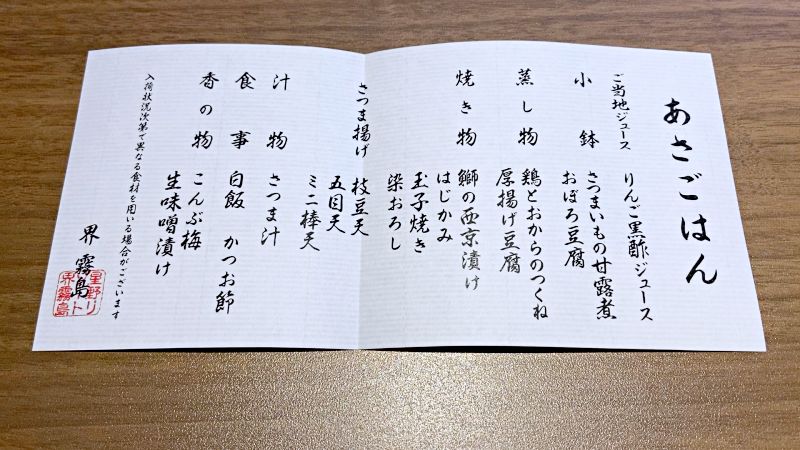 あさごはん
ご当地ジュース りんご黒酢ジュース
小鉢 さつまいもの甘露煮
おぼろ豆腐
蒸し物 鶏とおからのつくね
厚揚げ豆腐
焼き物 鰤の西京漬け
はじかみ
玉子焼き
染おろし
さつま揚げ 枝豆天
五目天
ミニ棒天
汁物 さつま汁
食事 白飯 かつお節
香の物 こんぶ梅
生味噌漬け
入荷状況次第で異なる食材を用いる場合がございます
界 霧島
星野リ
ト
界霧島